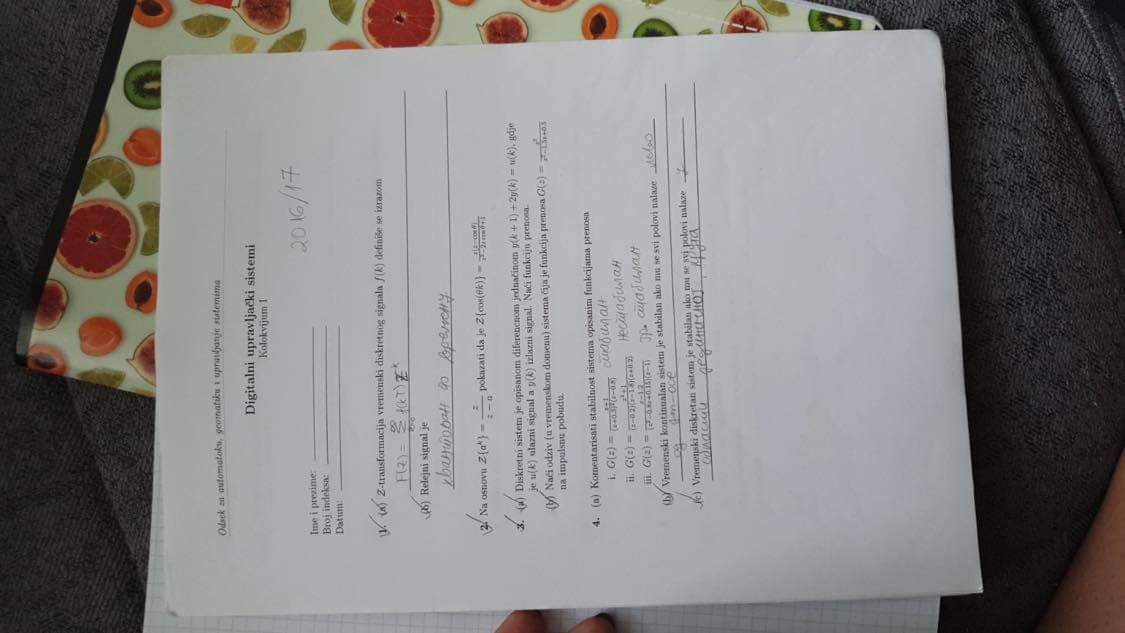 Odsek za automatiku, geomatiku i upravljanje sistemima
Digitalni upravljački sistemi
Kolokvijum 1
2016/17
Ime i prezime:
Broj indeksa:
Datum:
1. (a) Z-transformacija vremenski diskretnog signala f(k) definiše se izrazom
F(z) = ∑ f(kT) z^-k
(b) Relejni signal je
квантован по времену
2. Na osnovu Z{a^k} = z/(z − a) pokazati da je Z{cos(θk)} = z(z−cosθ)/(z²−2z cosθ+1)
3. (a) Diskretni sistem je opisanom diferencnom jednačinom y(k + 1) + 2y(k) = u(k), gdje
je u(k) ulazni signal a y(k) izlazni signal. Naći funkciju prenosa.
(b) Naći odziv (u vremenskom domenu) sistema čija je funkcija prenosa G(z) = z²/(z²−1.5z+0.5)
na impulsnu pobudu.
4. (a) Komentarisati stabilnost sistema opisanim funkcijama prenosa
i. G(z) = стабилан
ii. G(z) = нестабилан
iii. G(z) = гр. стабилан
(b) Vremenski kontinualan sistem je stabilan ako mu se svi polovi nalaze лево
од Im-осе
(c) Vremenski diskretan sistem je stabilan ako mu se svi polovi nalaze у
круга